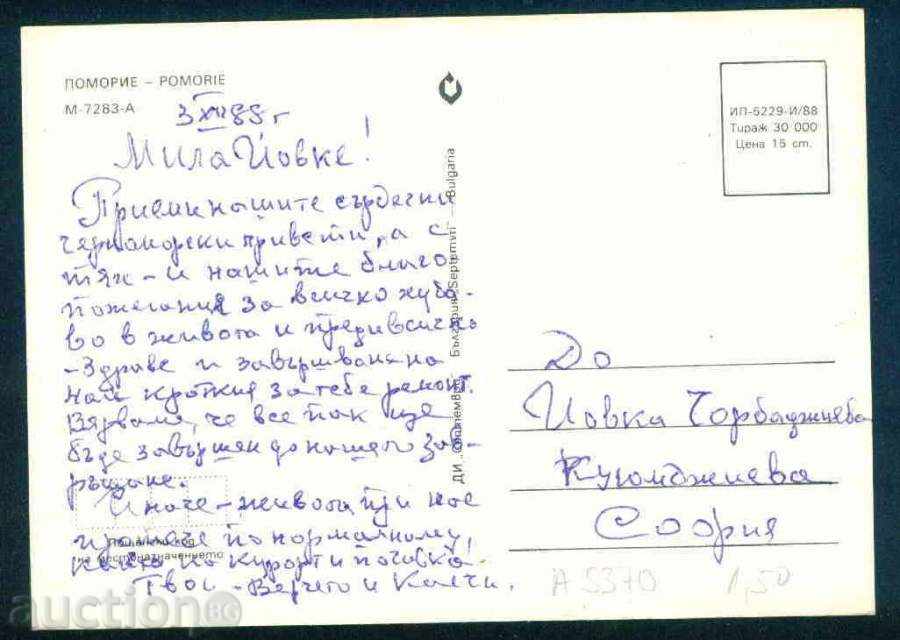 ПОМОРИЕ – POMORIE
М-7283-А
3 XII 88 г
Мила Йовке!
Приеми нашите сърдечни
черноморски привети, а с
тях – и нашите благо
пожелания за всичко хуба-
во в живота и преди всичко
– здраве и завършване на
най кроткия за тебе ремонт.
Вярваме, че все пак ще
бъде завършен до нашето зав-
ръщане.
Иначе – живота при нас
изглежда по нормалному,
като на курорт и почивка.
Твои – Верчето и Колчи.
Пощенски код
на местоназначението
ДИ „Септември“ България „Septemvri“ – Bulgaria
ИП-6229-И/88
Тираж 30 000
Цена 15 ст.
До
Йовка Чорбаджиева
Куюмджиева
София
А 5370
1,50
auction BG